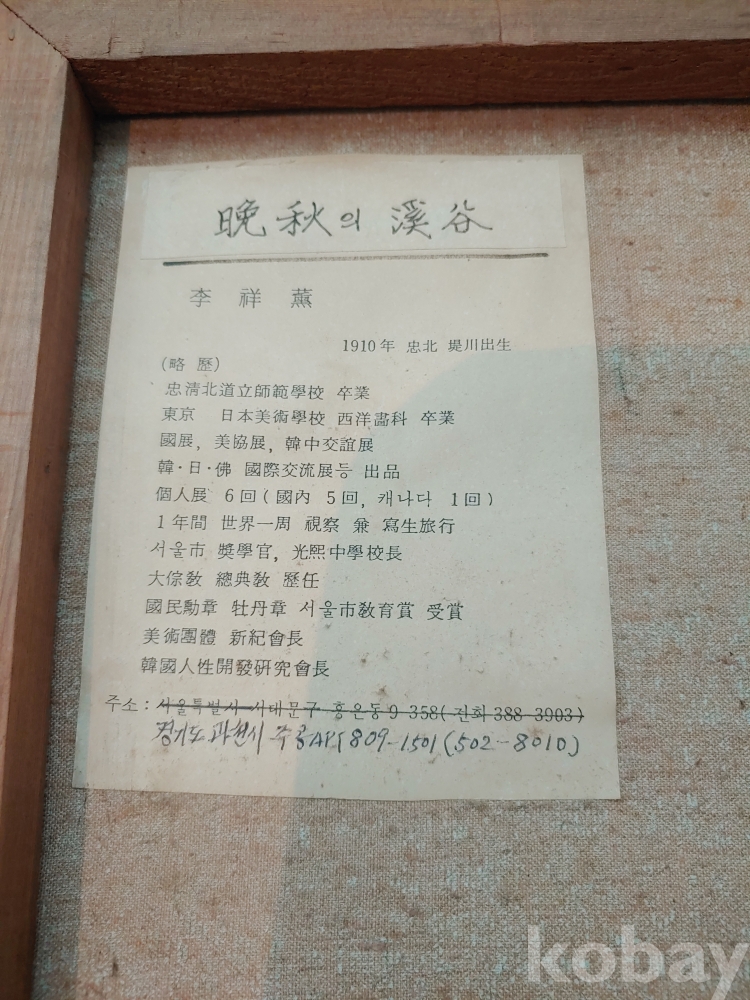 晩秋의 溪谷
李祥薰
1910年 忠北 堤川出生
(略 歷)
忠淸北道立師範學校 卒業
東京 日本美術學校 西洋畵科 卒業
國展, 美協展, 韓中交誼展
韓·日·佛 國際交流展등 出品
個人展 6回(國內 5回, 캐나다 1回)
1年間 世界一周 視察 兼 寫生旅行
서울市 奬學官, 光熙中學校長
大倧敎 總典敎 歷任
國民勳章 牡丹章 서울市敎育賞 受賞
美術團體 新紀會長
韓國人性開發硏究會長
주소: 서울특별시 서대문구 홍은동9-358(전화 388-3903)
경기도 과천시 주공APT 809-1501 (502-8010)
kobay